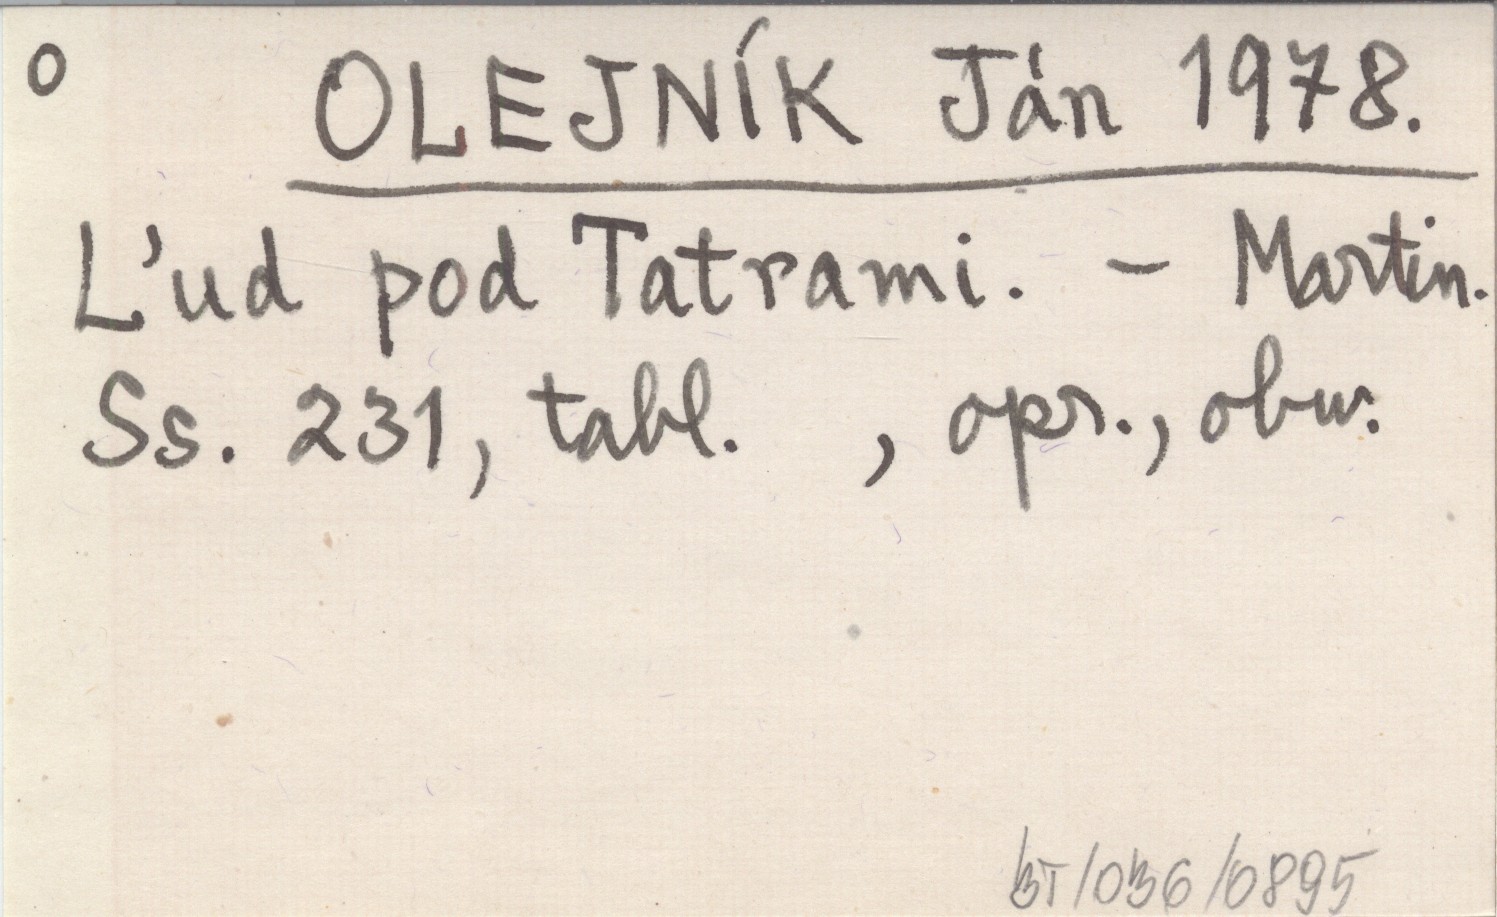 O OLEJNÍK Ján 1978.
L'ud pod Tatrami. - Martin.
Ss. 231, tabl. , opr., obw.
BT/036/0895